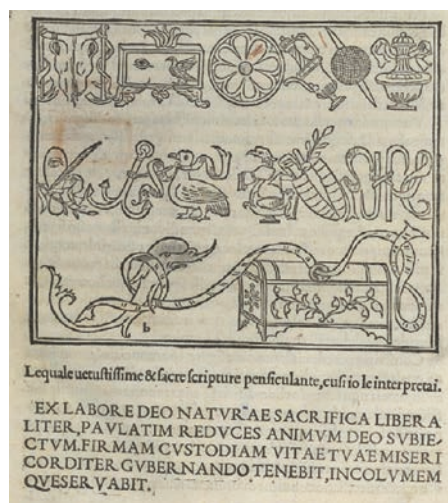 b
Lequale uetustissime & sacre scripture pensiculante, cusi io le interpretai.
EX LABORE DEO NATVRAE SACRIFICA LIBERA
LITER, PAVLATIM REDVCES ANIMVM DEO SVBIE-
CTVM. FIRMAM CVSTODIAM VITAE TVAE MISERI
CORDITER GVBERNANDO TENEBIT, INCOLVMEM
QVESERVABIT.